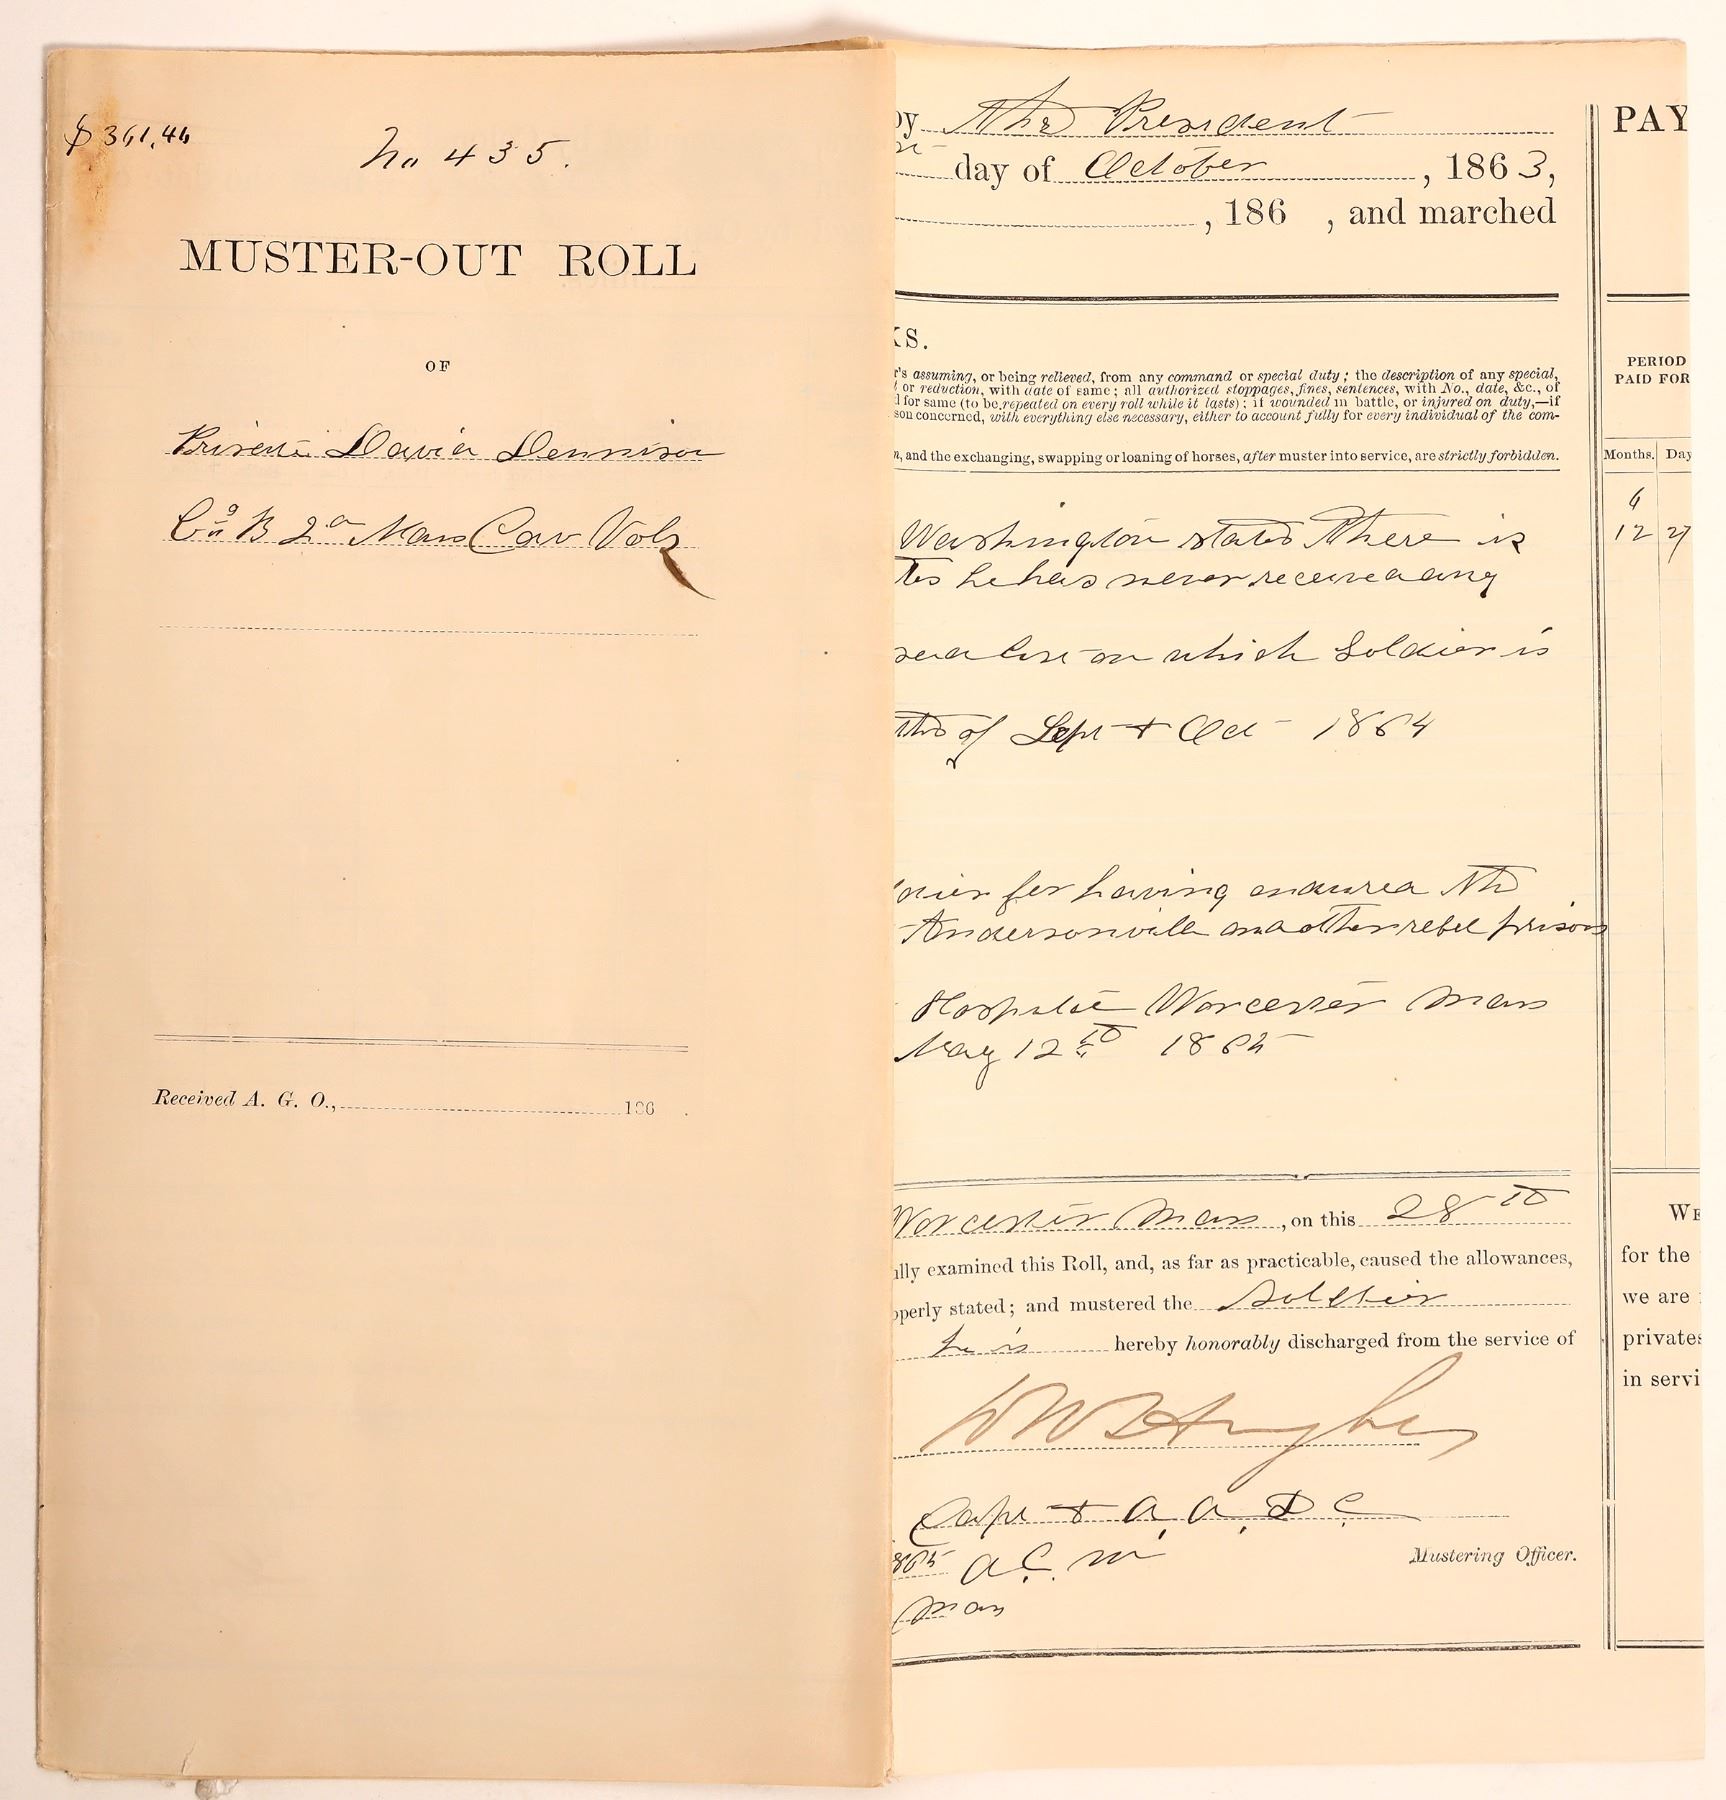 $ 361,46
No 435.
MUSTER-OUT ROLL
OF
Private David Dennison
Co B 2d Mass Cav Vols
Received A. G. O., 186 .
by The President
day of October , 1863,
, 186 , and marched
KS.
r's assuming, or being relieved, from any command or special duty; the description of any special,
or reduction, with date of same; all authorized stoppages, fines, sentences, with No., date, &c., of
d for same (to be repeated on every roll while it lasts); if wounded in battle, or injured on duty,—if
son concerned, with everything else necessary, either to account fully for every individual of the com-
n, and the exchanging, swapping or loaning of horses, after muster into service, are strictly forbidden.
Washington states There is
tes he has never received any
on which Soldier is
ths of Sept & Oct 1864
dier for having endured the
Andersonville and other rebel prisons
Hospital Worcester Mass
May 12th 1865
Worcester Mass , on this 28th
ully examined this Roll, and, as far as practicable, caused the allowances,
operly stated; and mustered the Soldier
he is hereby honorably discharged from the service of
Capt & A. A. D. C.
1865 A. C. M
Mustering Officer.
Mass
PAY
PERIOD
PAID FOR
Months. Day
6
12 27
WE
for the
we are
privates
in servi